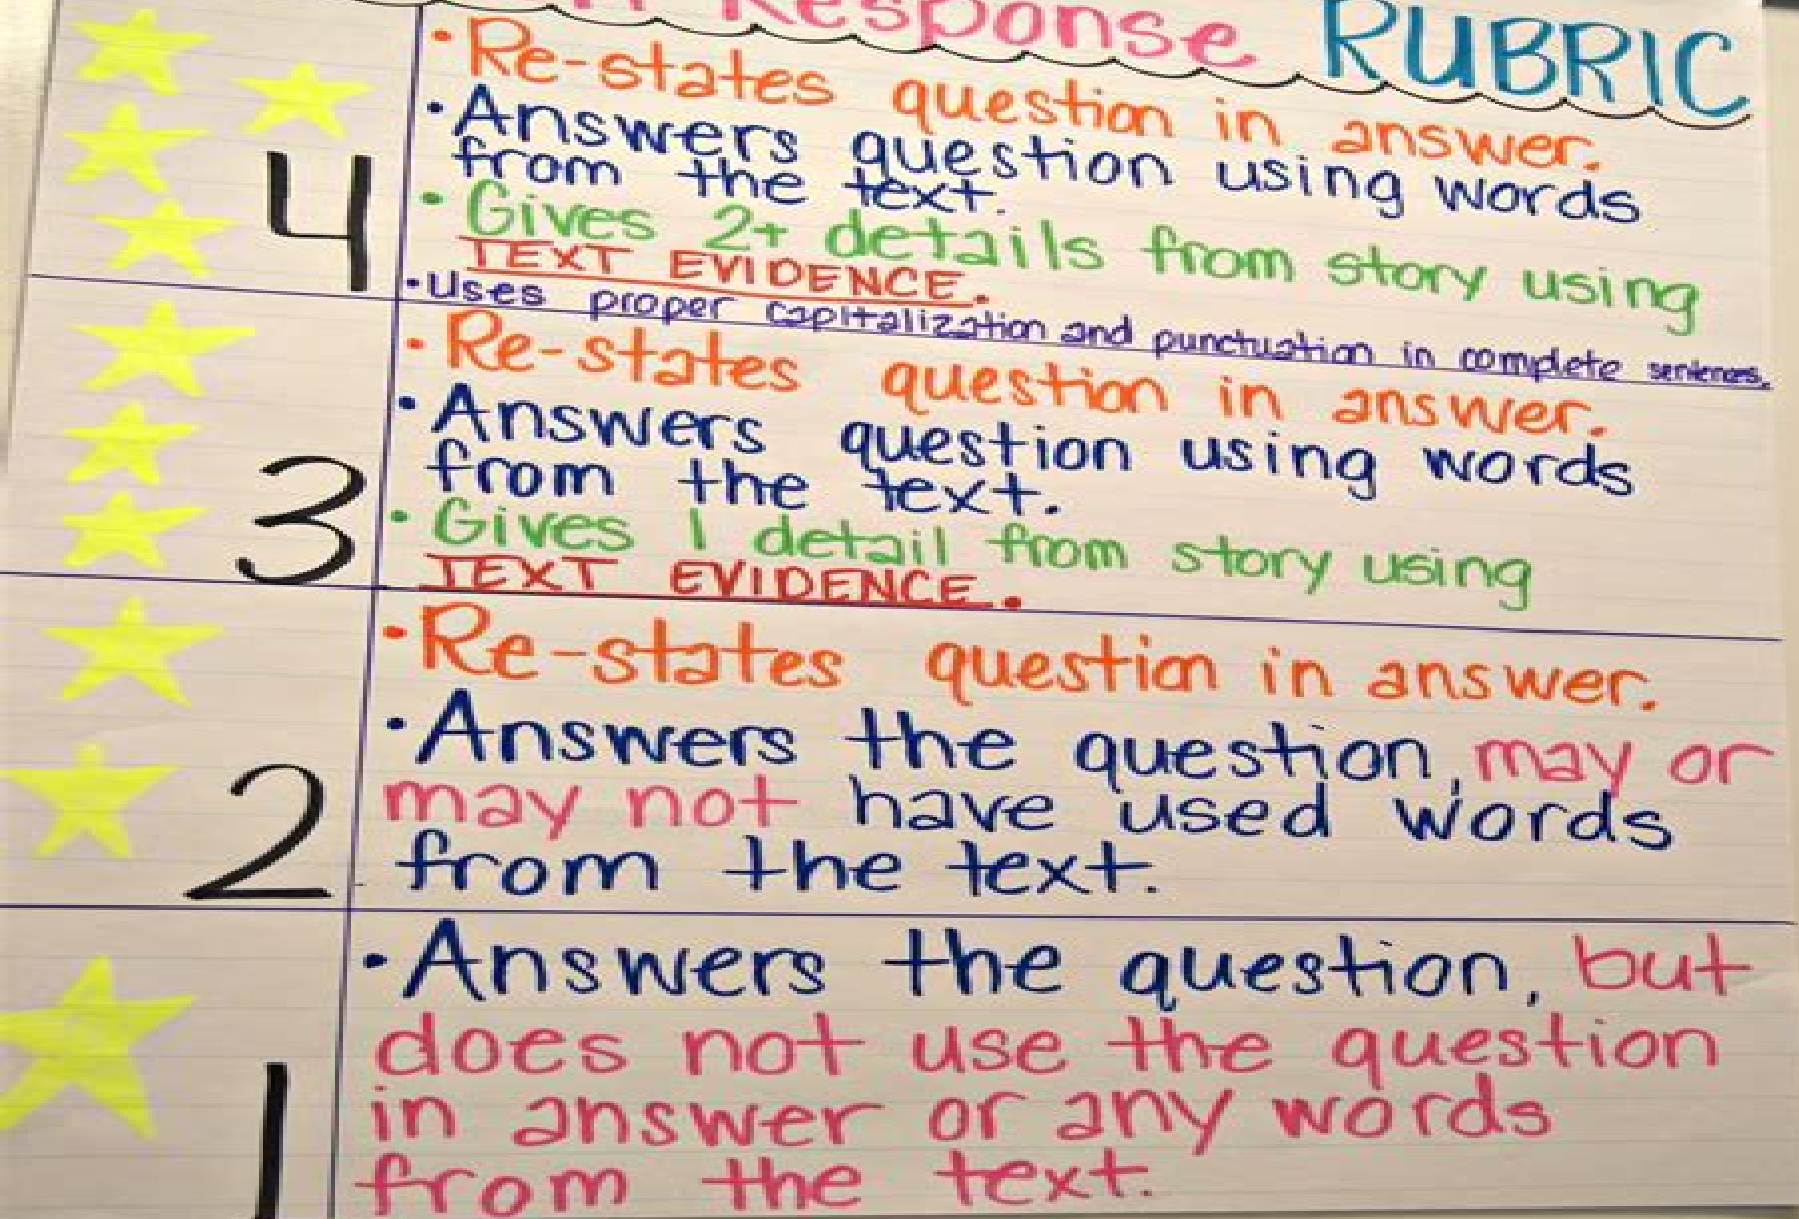 Response RUBRIC
4
• Re-states question in answer.
• Answers question using words
from the text.
• Gives 2+ details from story using
TEXT EVIDENCE.
• Uses proper capitalization and punctuation in complete sentences.
3
• Re-states question in answer.
• Answers question using words
from the text.
• Gives 1 detail from story using
TEXT EVIDENCE.
2
• Re-states question in answer.
• Answers the question, may or
may not have used words
from the text.
1
• Answers the question, but
does not use the question
in answer or any words
from the text.